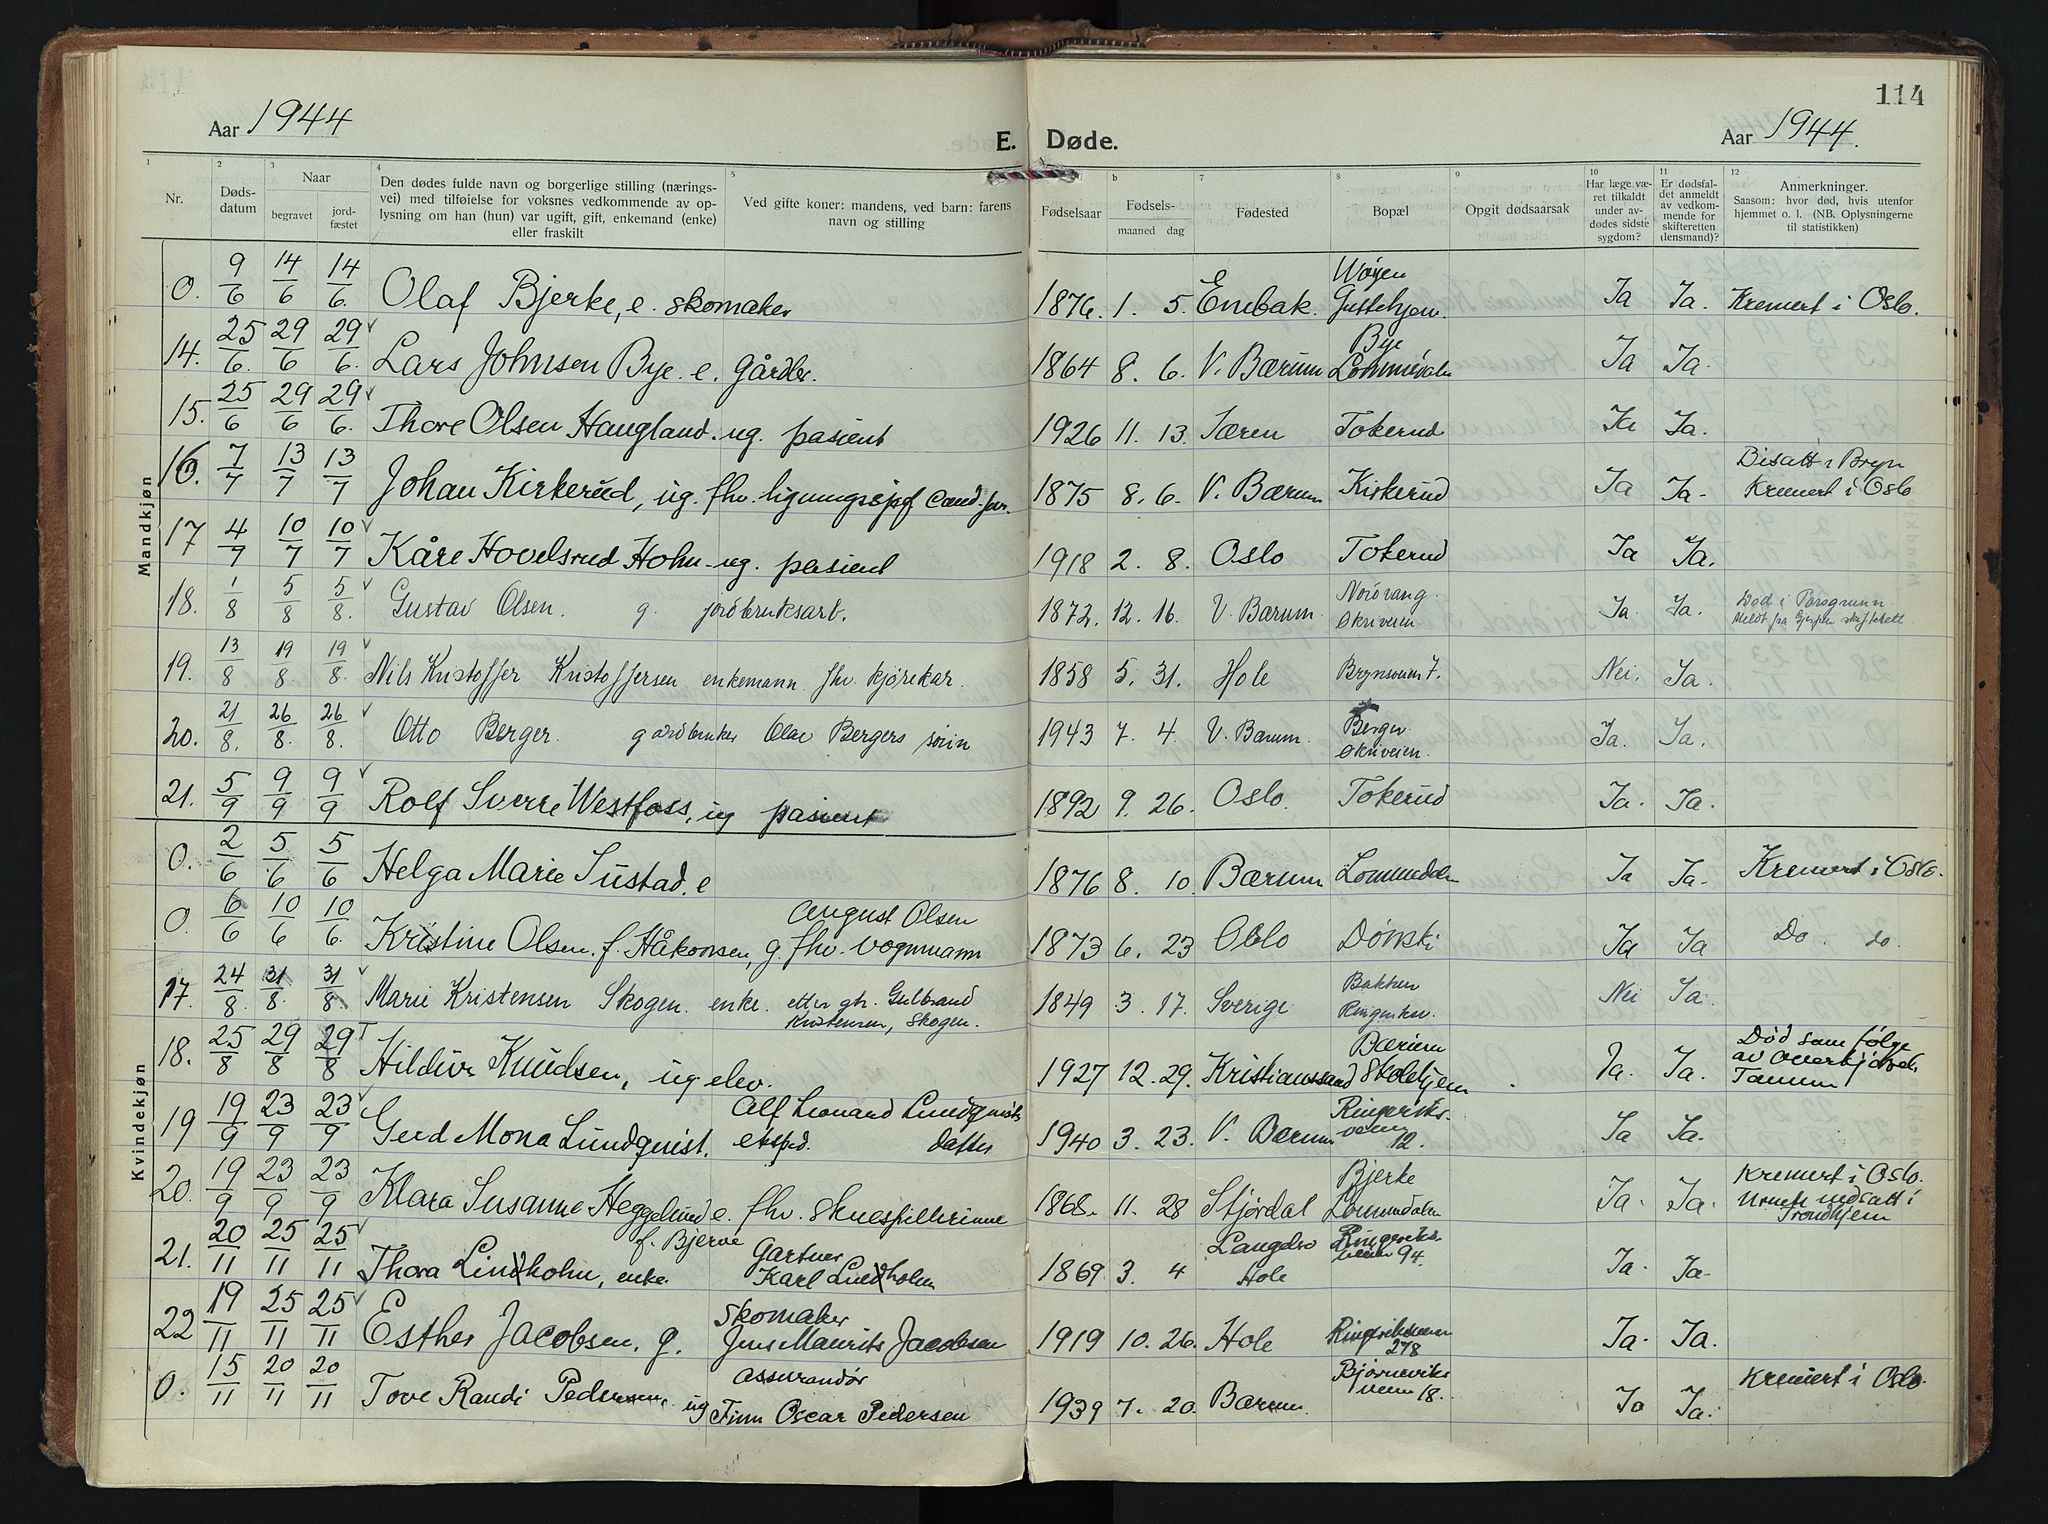 114
Aar 1944
E. Døde.
Aar 1944.
1 2 3 4 5 6 7 8 9 10 11 12
Nr. | Døds-datum | Naar begravet | jord-fæstet | Den dødes fulde navn og borgerlige stilling (nærings-vei) med tilføielse for voksnes vedkommende av op-lysning om han (hun) var ugift, gift, enkemand (enke) eller fraskilt | Ved gifte koner: mandens, ved barn: farens navn og stilling | Fødselsaar | Fødsels-maaned dag | Fødested | Bopæl | Opgit dødsaarsak | Har læge væ-ret tilkaldt under av-dødes sidste sygdom? | Er dødsfal-det anmeldt av vedkom-mende for skifteretten (lensmand)? | Anmerkninger. Saasom: hvor død, hvis utenfor hjemmet o. l. (NB. Oplysningerne til statistikken)
Mandkjøn
0. 9/6 14/6 14/6. Olaf Bjerke, e. skomaker 1876. 1. 5. Enebak. Wøyen Guttehjem. Ja Ja. Kremert i Oslo.
14. 25/6. 29/6 29/6. Lars Johnsen Bye. e. gårdbr. 1864 8. 6. V. Bærum Bye Lommedalen Ja Ja.
15. 25/6 29/6 29/6. Thore Olsen Haugland. ug. pasient 1926 11. 13. Jæren Tokerud Ja Ja.
16. 7/7 13/7 13/7 Johan Kirkerud, ug. fhv. ligningssjef cand. jur. 1875 8. 6. V. Bærum Kirkerud Ja Ja. Bisatt i Bryn Kremert i Oslo
17 4/7 10/7 10/7 Kåre Hovelsrud Holm ug. pasient 1918 2. 8. Oslo Tokerud Ja Ja.
18. 1/8 5/8 5/8. Gustav Olsen. g. jordbruksarb. 1872. 12. 16. V. Bærum. Skriveien Ja Ja. Død i Porsgrunn. Meldt fra Gjerpen skifterett
19. 13/8 19/8. 19/8. Nils Kristoffer Kristoffersen enkemann. fhv. kjørekar. 1858 5. 31. Hole Brynsveien 7. Nei. Ja.
20. 21/8. 26/8. 26/8. Otto Berger. gårdbruker Olav Bergers sønn 1943 7. 4. V. Bærum. Berger Skriveien. Ja. Ja.
21. 5/9 9/9 9/9 Rolf Sverre Westfoss, ug pasient 1892 9. 26. Oslo. Tokerud Ja. Ja.
Kvindekjøn
0. 2/6 5/6 5/6 Helga Marie Sustad, e 1876 8. 10. Bærum Lommedalen Ja Ja. Kremert i Oslo.
0. 6/6 10/6 10/6. Kristine Olsen. f. Håkonsen, g. August Olsen fhv. vognmann 1873 6. 23 Oslo Dønski Ja Ja Do. do.
17. 24/8. 31/8. 31/8. Marie Kristensen Skogen. enke. etter gb. Gulbrand Kristensen, Skogen. 1849 3. 17. Sverige Bakken Ringeriksv. Nei Ja.
18. 25/8 29/8 29/8 T Hildur Knudsen, ug elev. 1927 12. 29. Kristianssand Bærum Skolehjem Ja. Ja. Død som følge av Tanum
19 19/9 23/9 23/9 Gerd Mona Lundquist. Alf Leonard Lundquists eksped. datter 1940 3. 23. V. Bærum Ringeriks-veien 12. Ja Ja.
20. 19/9 23/9 23/9 Klara Susanne Heggelund e. fhv. Skuespillerinne f. Bjerve 1868. 11. 28 Stjørdal Bjerke Lommedalen Ja. Ja. Kremert i Oslo. Urnen nedsatt i Trondhjem
21. 20/11 25/11 25/11 Thora Lindholm, enke Gartner Karl Lindholm 1869 3. 4 Hole Ringeriks-veien 94. Ja. Ja.
22 19/11 25/11 25/11 Esther Jacobsen. g. Skomaker Jens Maurits Jacobsen 1919 10. 26. Hole Ringeriksveien 278 Ja. Ja.
0. 15/11 20/11 20/11 Tove Randi Pedersen, ug Assurandør Finn Oscar Pedersen 1939 7. 20. Bærum. Bjørneviks veien 18. Ja Ja. Kremert i Oslo.